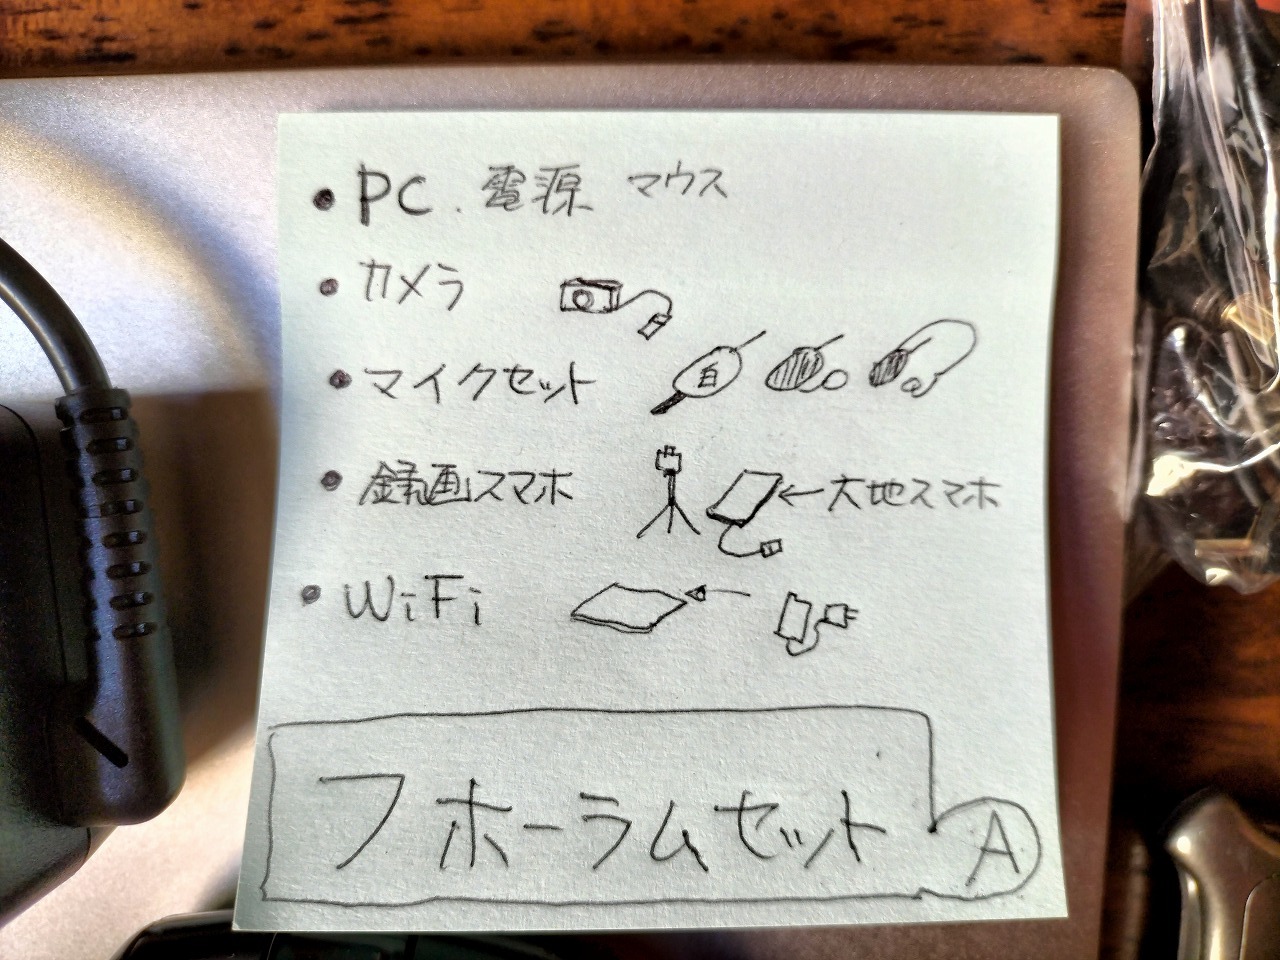 • PC. 電源 マウス
• カメラ
• マイクセット 白
• 録画スマホ ←大地スマホ
• WiFi
フホーラムセット A